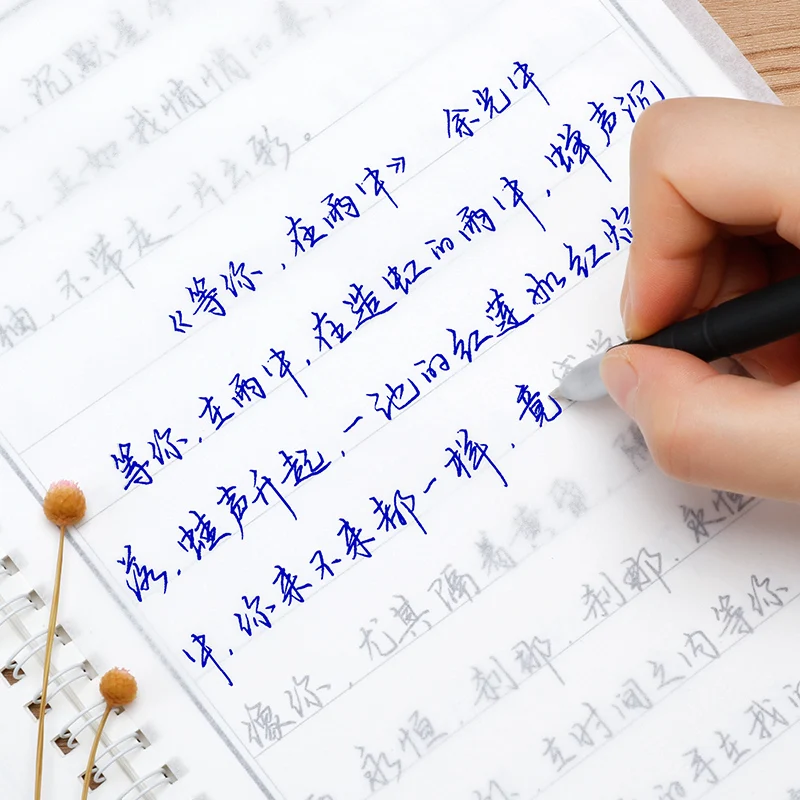 沉默是今
了，正如我悄悄的来，
袖，不带走一片云彩。
《等你，在雨中》 余光中
等你，在雨中，在造虹的雨中，蝉声沉
落，蛙声升起，一池的红莲如红焰
中，你来不来都一样，竟感觉
像你，尤其隔着黄昏，隔
永恒，刹那，刹那，永恒
，在时间之内等你
的手在我的